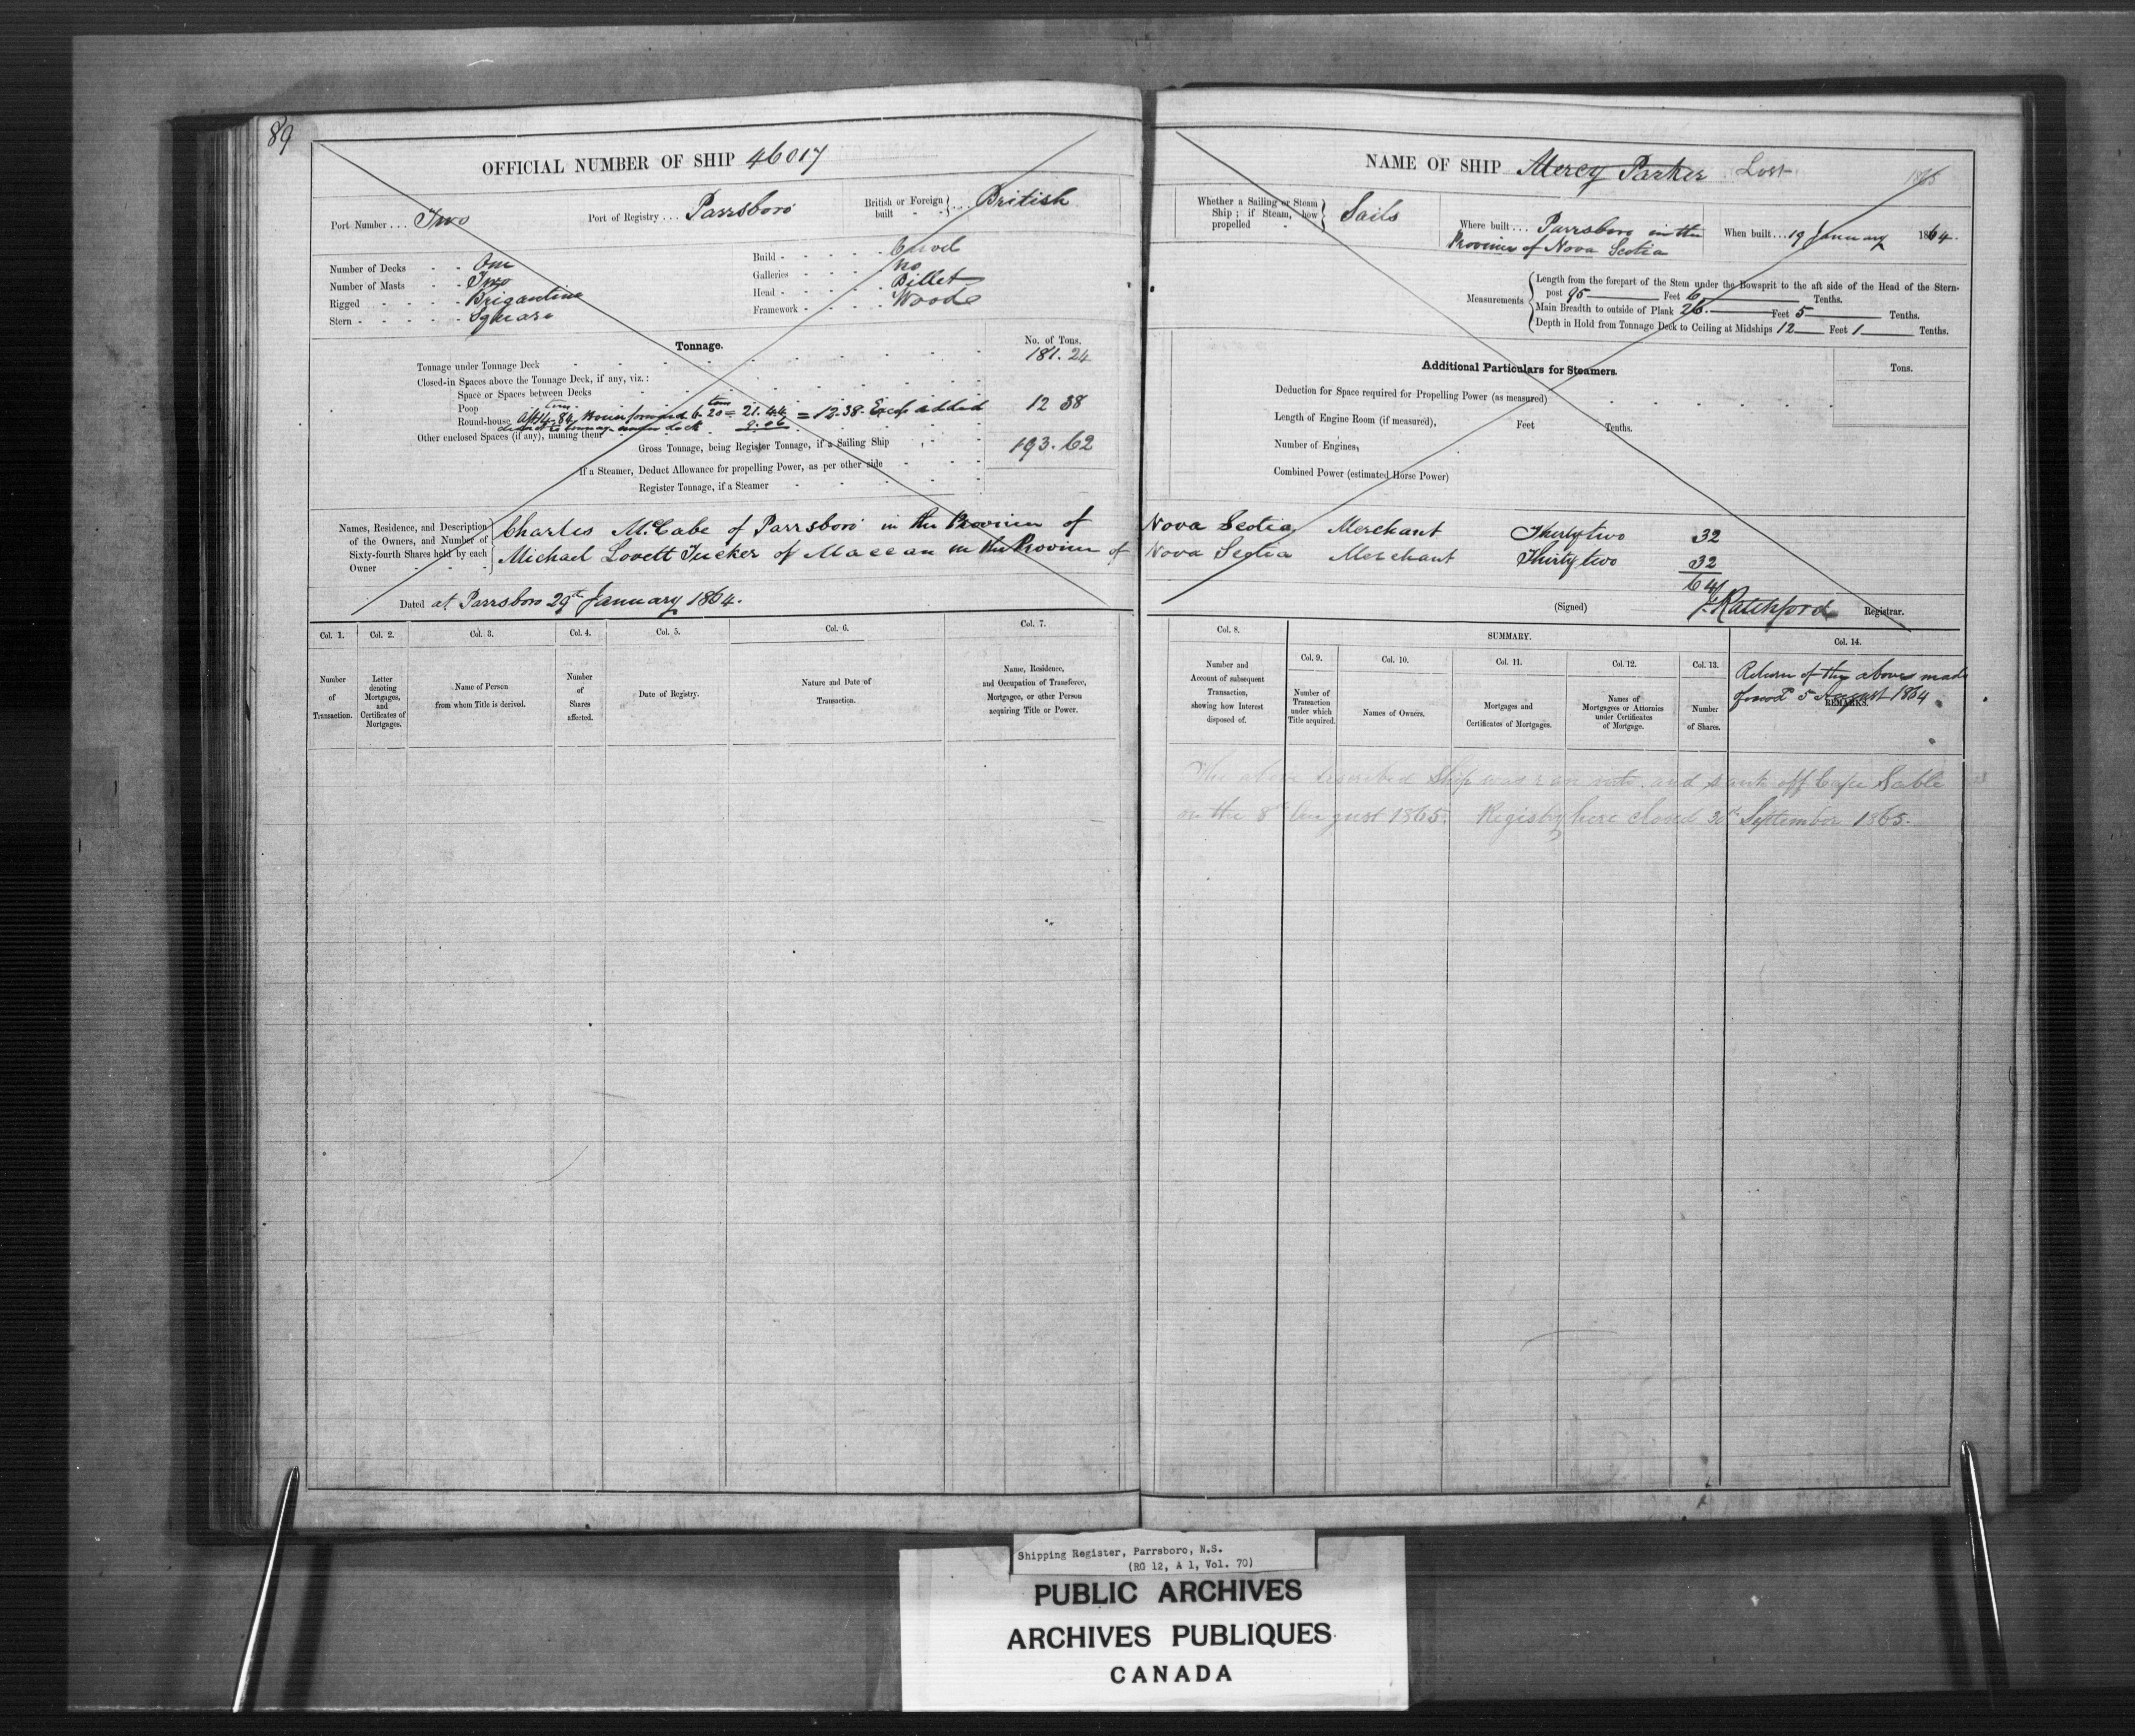 89
OFFICIAL NUMBER OF SHIP 46017
Port Number . . . Two
Port of Registry . . . Parrsboro
British or Foreign built . . . British
Number of Decks - - One
Number of Masts - - Two
Rigged - - - - Brigantine
Stern - - - - - Square
Build - - - - - Carvel
Galleries - - - - No
Head - - - - - Billet
Framework - - - - Wood
Tonnage.
No. of Tons.
Tonnage under Tonnage Deck 181.24
Closed-in Spaces above the Tonnage Deck, if any, viz.:
Space or Spaces between Decks
Poop
Round-house 20 = 21.44 = 12.38. Excess added 12 38
9.06
Other enclosed Spaces (if any), naming them
Gross Tonnage, being Register Tonnage, if a Sailing Ship 193.62
If a Steamer, Deduct Allowance for propelling Power, as per other side
Register Tonnage, if a Steamer
Names, Residence, and Description of the Owners, and Number of Sixty-fourth Shares held by each Owner
Charles McCabe of Parrsboro in the Province of
Michael Lovett Tucker of Maccan in the Province of
Dated at Parrsboro 29th January 1864.
Col. 1. Col. 2. Col. 3. Col. 4. Col. 5. Col. 6. Col. 7.
Number of Transaction.
Letter denoting Mortgages, and Certificates of Mortgages.
Name of Person from whom Title is derived.
Number of Shares affected.
Date of Registry.
Nature and Date of Transaction.
Name, Residence, and Occupation of Transferee, Mortgagee, or other Person acquiring Title or Power.
NAME OF SHIP Mercy Parker Lost 1865
Whether a Sailing or Steam Ship; if Steam, how propelled Sails
Where built . . . Parrsboro in the
Province of Nova Scotia
When built . . . 19 January 1864.
Measurements
Length from the forepart of the Stem under the Bowsprit to the aft side of the Head of the Stern-
post 95 Feet 6 Tenths.
Main Breadth to outside of Plank 26 Feet 5 Tenths.
Depth in Hold from Tonnage Deck to Ceiling at Midships 12 Feet 1 Tenths.
Additional Particulars for Steamers.
Tons.
Deduction for Space required for Propelling Power (as measured)
Length of Engine Room (if measured), Feet Tenths.
Number of Engines,
Combined Power (estimated Horse Power)
Nova Scotia Merchant Thirty two 32
Nova Scotia Merchant Thirty two 32
64
(Signed) Ratchford Registrar.
Col. 8. SUMMARY. Col. 14.
Col. 9. Col. 10. Col. 11. Col. 12. Col. 13.
Number and Account of subsequent Transaction, showing how Interest disposed of.
Number of Transaction under which Title acquired.
Names of Owners.
Mortgages and Certificates of Mortgages.
Names of Mortgagees or Attornies under Certificates of Mortgage.
Number of Shares.
REMARKS.
Return of the above made
5 August 1864
The above described Ship was ran into and sank off Cape Sable
on the 8th August 1865. Registry here closed 30th September 1865.
Shipping Register, Parrsboro, N.S.
(RG 12, A 1, Vol. 70)
PUBLIC ARCHIVES
ARCHIVES PUBLIQUES
CANADA